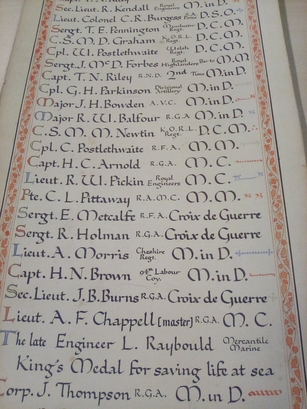 Sec. Lieut. R. Kendall Royal Engineers D.C.M.
Lieut. Colonel C.R. Burgess D.S.O.
Sergt. T. E. Pennington Regt. D.C.M.
C.S.M. D. Graham K.O.R.L. Regt. D.C.M.
Cpl. W. Postlethwaite Welsh Regt. D.C.M.
Sergt. J. McD. Forbes Royal Highlanders Bar to M.M.
Capt. T. N. Riley R.N.D. 2nd Time M. in D.
Cpl. G. H. Parkinson Divisional Artillery M. in D.
Major J. H. Bowden A.V.C. M. in D.
Major R. W. Balfour R.G.A. M. in D.
C.S.M. M. Newtin K.O.R.L. Regt. D.C.M.
Cpl. C. Postlethwaite R.F.A. M.M.
Capt. H. C. Arnold R.G.A. M.C.
Lieut. R. W. Pickin Royal Engineers M.C.
Pte. C. L. Pittaway R.A.M.C. M.M.
Sergt. E. Metcalfe R.F.A. Croix de Guerre
Sergt. R. Holman R.G.A. Croix de Guerre
Lieut. A. Morris Cheshire Regt. M. in D.
Capt. H. N. Brown Labour Coy. M. in D.
Sec. Lieut. J. B. Burns R.G.A. Croix de Guerre
Lieut. A. F. Chappell (master) R.G.A. M.C.
The late Engineer L. Raybould Mercantile Marine
King's Medal for saving life at sea
Corp. J. Thompson R.G.A. M. in D.